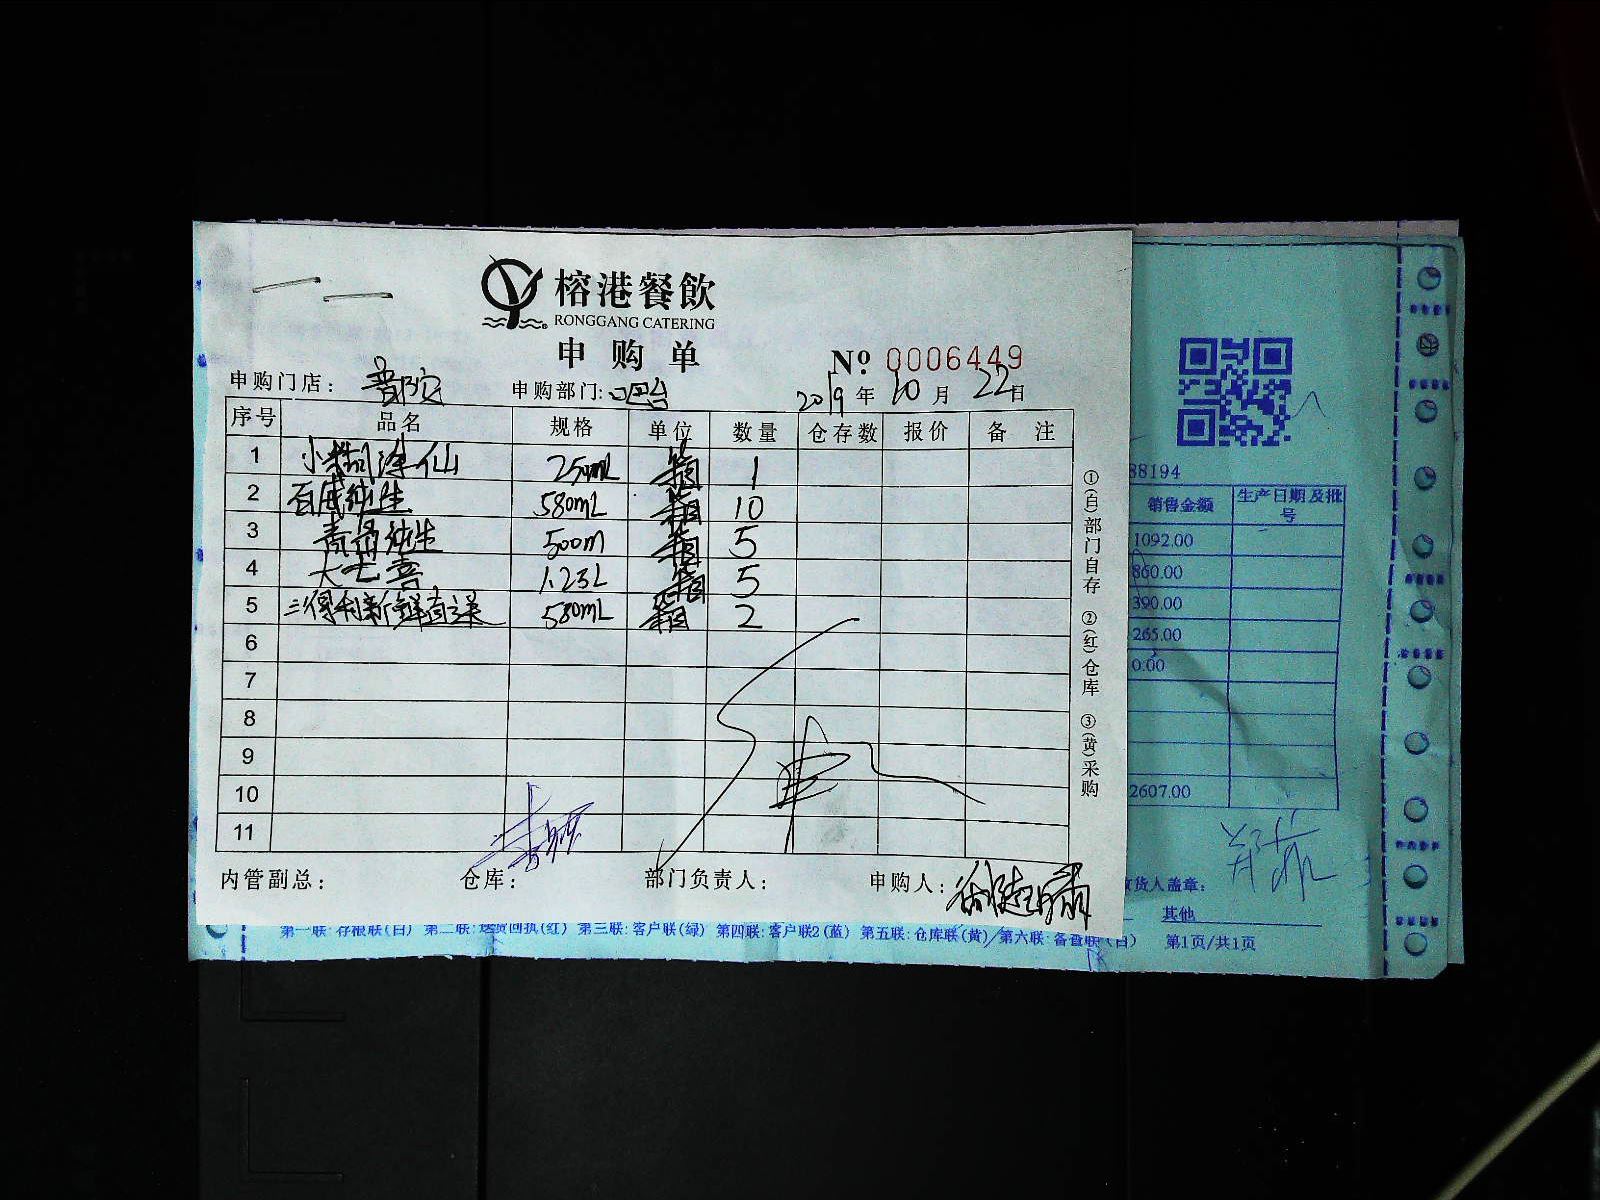 榕港餐飲
RONGGANG CATERING
申购单
№ 0006449
申购门店：普陀 申购部门：吧台 2019年10月22日
序号 品名 规格 单位 数量 仓存数 报价 备注
1 小糊涂仙 250mL 箱 1
2 百威纯生 580mL 箱 10
3 青岛纯生 500m 箱 5
4 大七喜 1.25L 箱 5
5 三得利新鲜直送 580mL 箱 2
6
7
8
9
10
11
内管副总： 仓库： 部门负责人： 申购人：
①(白)部门自存 ②(红)仓库 ③(黄)采购
88194
销售金额 生产日期及批号
1092.00
860.00
390.00
265.00
0.00
2607.00
收货人盖章：
其他
第一联:存根联(白) 第二联:送货回执(红) 第三联:客户联(绿) 第四联:客户联2(蓝) 第五联:仓库联(黄) 第六联:备查联(白) 第1页/共1页